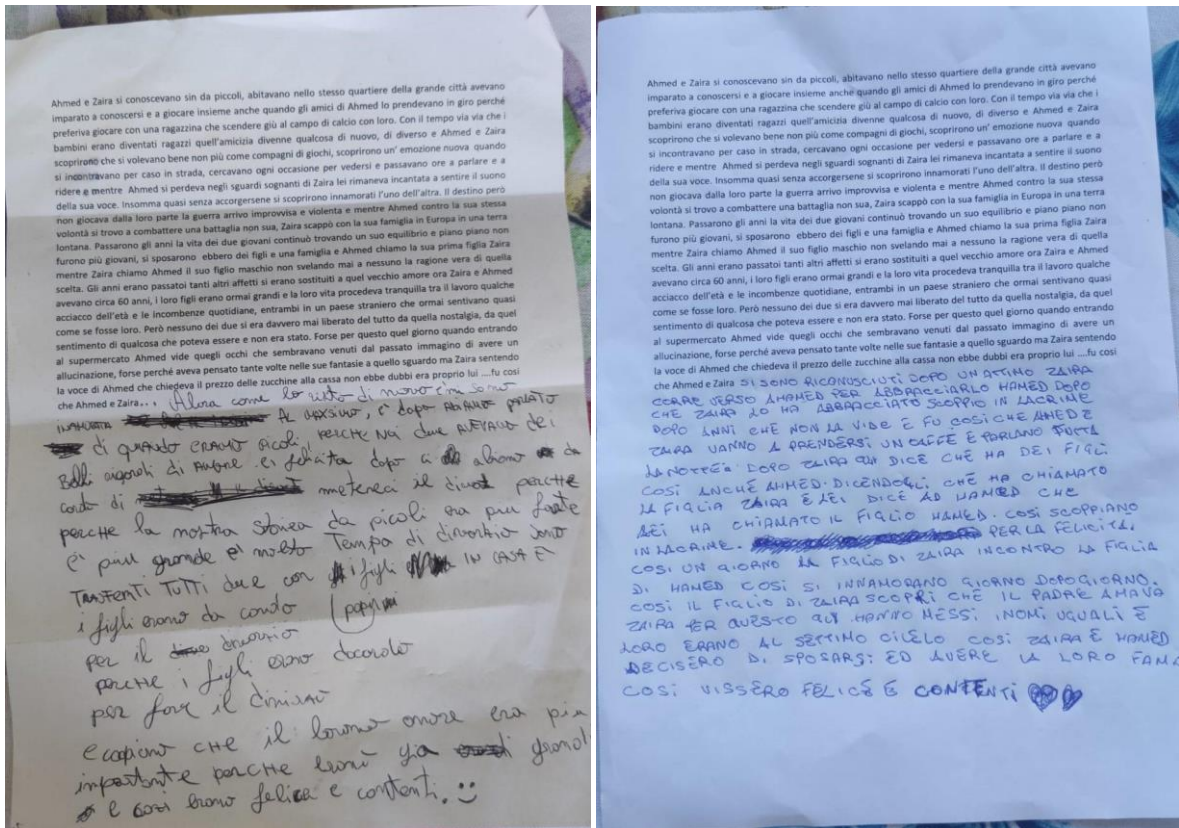 Ahmed e Zaira si conoscevano sin da piccoli, abitavano nello stesso quartiere della grande città avevano
imparato a conoscersi e a giocare insieme anche quando gli amici di Ahmed lo prendevano in giro perché
preferiva giocare con una ragazzina che scendere giù al campo di calcio con loro. Con il tempo via via che i
bambini erano diventati ragazzi quell'amicizia divenne qualcosa di nuovo, di diverso e Ahmed e Zaira
scoprirono che si volevano bene non più come compagni di giochi, scoprirono un' emozione nuova quando
si incontravano per caso in strada, cercavano ogni occasione per vedersi e passavano ore a parlare e a
ridere e mentre Ahmed si perdeva negli sguardi sognanti di Zaira lei rimaneva incantata a sentire il suono
della sua voce. Insomma quasi senza accorgersene si scoprirono innamorati l'uno dell'altra. Il destino però
non giocava dalla loro parte la guerra arrivo improvvisa e violenta e mentre Ahmed contro la sua stessa
volontà si trovo a combattere una battaglia non sua, Zaira scappò con la sua famiglia in Europa in una terra
lontana. Passarono gli anni la vita dei due giovani continuò trovando un suo equilibrio e piano piano non
furono più giovani, si sposarono ebbero dei figli e una famiglia e Ahmed chiamo la sua prima figlia Zaira
mentre Zaira chiamo Ahmed il suo figlio maschio non svelando mai a nessuno la ragione vera di quella
scelta. Gli anni erano passatoi tanti altri affetti si erano sostituiti a quel vecchio amore ora Zaira e Ahmed
avevano circa 60 anni, i loro figli erano ormai grandi e la loro vita procedeva tranquilla tra il lavoro qualche
acciacco dell'età e le incombenze quotidiane, entrambi in un paese straniero che ormai sentivano quasi
come se fosse loro. Però nessuno dei due si era davvero mai liberato del tutto da quella nostalgia, da quel
sentimento di qualcosa che poteva essere e non era stato. Forse per questo quel giorno quando entrando
al supermercato Ahmed vide quegli occhi che sembravano venuti dal passato immagino di avere un
allucinazione, forse perché aveva pensato tante volte nelle sue fantasie a quello sguardo ma Zaira sentendo
la voce di Ahmed che chiedeva il prezzo delle zucchine alla cassa non ebbe dubbi era proprio lui ....fu cosi
che Ahmed e Zaira... Alora come lo visto di nuovo
e dopo
di quando eravamo picoli, perche noi due avevamo dei
Belli di Amore e felicita dopo
di metereci il perche
perche la nostra storiea da picoli era piu forte
e piu grande molto Tempo di divorzio sono
TRASFERITI TUTTI due con i figli IN CASA E
i figli erano da cordo
per il divorzio
perche i figli erano dacordo
per fare il
CHE il amore era piu
importante perche erano gia grandi
e cosi erano felice e contenti.
Ahmed e Zaira si conoscevano sin da piccoli, abitavano nello stesso quartiere della grande città avevano
imparato a conoscersi e a giocare insieme anche quando gli amici di Ahmed lo prendevano in giro perché
preferiva giocare con una ragazzina che scendere giù al campo di calcio con loro. Con il tempo via via che i
bambini erano diventati ragazzi quell'amicizia divenne qualcosa di nuovo, di diverso e Ahmed e Zaira
scoprirono che si volevano bene non più come compagni di giochi, scoprirono un' emozione nuova quando
si incontravano per caso in strada, cercavano ogni occasione per vedersi e passavano ore a parlare e a
ridere e mentre Ahmed si perdeva negli sguardi sognanti di Zaira lei rimaneva incantata a sentire il suono
della sua voce. Insomma quasi senza accorgersene si scoprirono innamorati l'uno dell'altra. Il destino però
non giocava dalla loro parte la guerra arrivo improvvisa e violenta e mentre Ahmed contro la sua stessa
volontà si trovo a combattere una battaglia non sua, Zaira scappò con la sua famiglia in Europa in una terra
lontana. Passarono gli anni la vita dei due giovani continuò trovando un suo equilibrio e piano piano non
furono più giovani, si sposarono ebbero dei figli e una famiglia e Ahmed chiamo la sua prima figlia Zaira
mentre Zaira chiamo Ahmed il suo figlio maschio non svelando mai a nessuno la ragione vera di quella
scelta. Gli anni erano passatoi tanti altri affetti si erano sostituiti a quel vecchio amore ora Zaira e Ahmed
avevano circa 60 anni, i loro figli erano ormai grandi e la loro vita procedeva tranquilla tra il lavoro qualche
acciacco dell'età e le incombenze quotidiane, entrambi in un paese straniero che ormai sentivano quasi
come se fosse loro. Però nessuno dei due si era davvero mai liberato del tutto da quella nostalgia, da quel
sentimento di qualcosa che poteva essere e non era stato. Forse per questo quel giorno quando entrando
al supermercato Ahmed vide quegli occhi che sembravano venuti dal passato immagino di avere un
allucinazione, forse perché aveva pensato tante volte nelle sue fantasie a quello sguardo ma Zaira sentendo
la voce di Ahmed che chiedeva il prezzo delle zucchine alla cassa non ebbe dubbi era proprio lui ....fu cosi
che Ahmed e Zaira SI SONO RICONOSCIUTI DOPO UN ATTIMO ZAIRA
CORRE VERSO AHAMED PER ABBRACCIARLO HAMED DOPO
CHE ZAIRA LO HA ABBRACCIATO SCOPPIO IN LACRIME
DOPO ANNI CHE NON LA VIDE E FU COSI CHE AHED E
ZAIRA VANNO A PRENDERSI UN CAFFE E PARLANO TUTTA
LA NOTTE DOPO ZAIRA GLI DICE CHE HA DEI FIGLI
COSI ANCHE AHMED. DICENDOGLI CHE HA CHIAMATO
LA FIGLIA ZAIRA E LEI DICE AD HAMED CHE
LEI HA CHIAMATO IL FIGLIO HAMED. COSI SCOPPIANO
IN LACRIME. PER LA FELICITA.
COSI UN GIORNO IL FIGLIO DI ZAIRA INCONTRO LA FIGLIA
DI HAMED COSI SI INNAMORANO GIORNO DOPO GIORNO.
COSI IL FIGLIO DI ZAIRA SCOPRI CHE IL PADRE AMAVA
ZAIRA PER QUESTO GLI HANNO MESSI I NOMI UGUALI E
LORO ERANO AL SETTIMO CILELO COSI ZAIRA E HAMED
DECISERO DI SPOSARSI ED AVERE LA LORO FAM
COSI VISSERO FELICE E CONTENTI